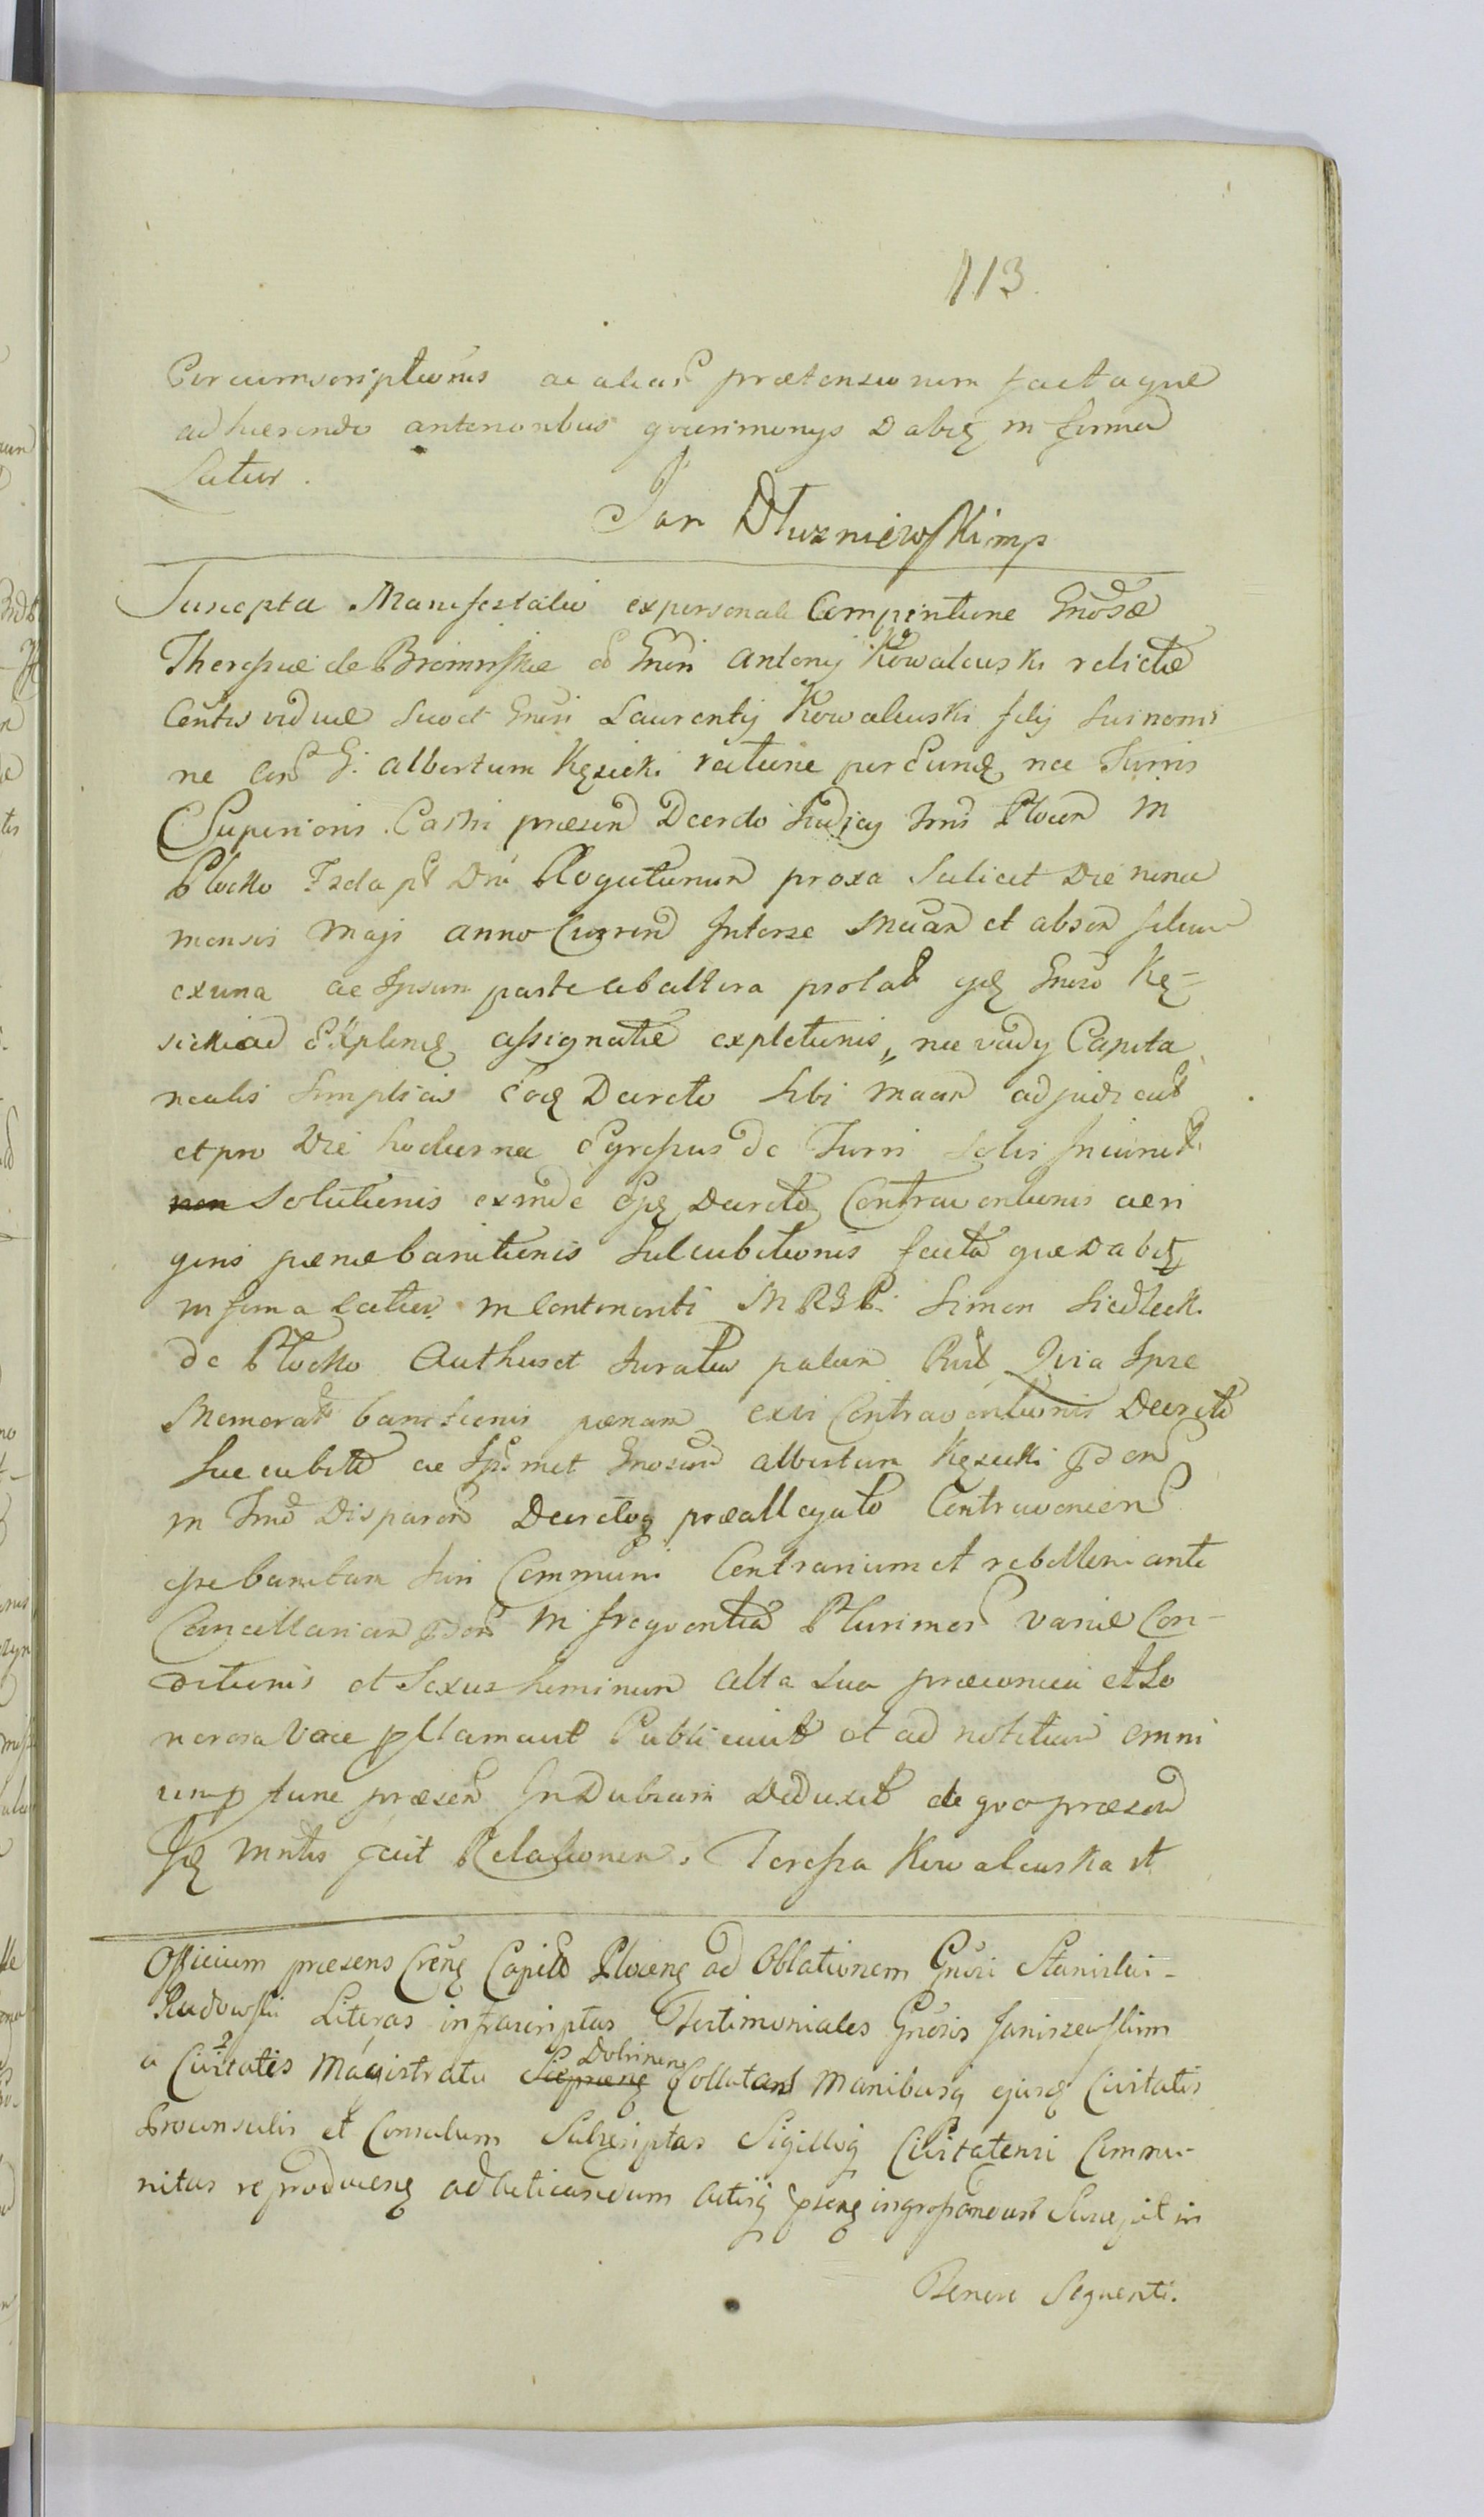 113.
Circumscriptionis ac alias prætensionem factaque
adhærendo anterioribus querimonys Dabit in forma
Latiori.
Jan Dłuzniewski mp
Suscepta Manifestatio ex personali Comparitione Gnosæ
Theressæ de Bromirskie Gnsi Antony Kowalewski relictæ
Consortis viduæ suo et Gnsi Laurenty Kowalewski fily sui nomi
ne con G. Albertum Kęsicki ratione per Eund nec Turris
Superioris Castri præsen Decreto Judicy Tris Plocen in
Plocko Fzda pt Dni Rogationum proxa Scilicet Die nona
mensis Maji anno Curren Inter se Mean et absen filium
ex una ac Ipsum parte ab altera prolat Gnso Kę=
sicki ad Explend assignatæ expletionis, nec vady Capita
nealis simplicis Eod Decreto sibi mean adjudicat
et pro Die hodierna Egressus de Turri Solis Iniunct
non Solutionis exinde Decreto Contraventionis aeri
gens pænæ banitionis succubitionis facta quæ Dabit
in forma Latiori in Continenti M R G P. Simon Siedlecki
de Plocko Authus et Juratus palam Quia Ipse
Memorat banitionis pænam exvi Contraventionis Decreto
succubito ac Ipsmet Gnosum Albertum Kęsicki
in Disparen Decretoq præallegato Contravenien
esse banitum Juri Communi Contrarium et rebellem ante
Cancellariam in frequentia Plurimor variæ Con-
ditionis et Sexus hominum alta sua præconica et So
norosa Voce pclamavit Publicavit et ad notitiam omni
ump tunc præsen Indubiam Deduxit de quo præsen
fecit Relationem. Teressa Kowalewska
Officium præsens Crens Capit Plocens ad Oblationem Gnsi Stanislai-
Rudowski Literas infrascriptas Testimoniales Gnosis Janiszewskim
a Civitatis Magistratu Dobrinen Collatas Manibusq ejusd Civitatis
Proconsulis et Consulum Subscriptas Sigilloq Civitatensi Commu-
nitas reproducens ad acticandum Actisq psens ingrossandas Suscepit in
Tenore Sequenti.